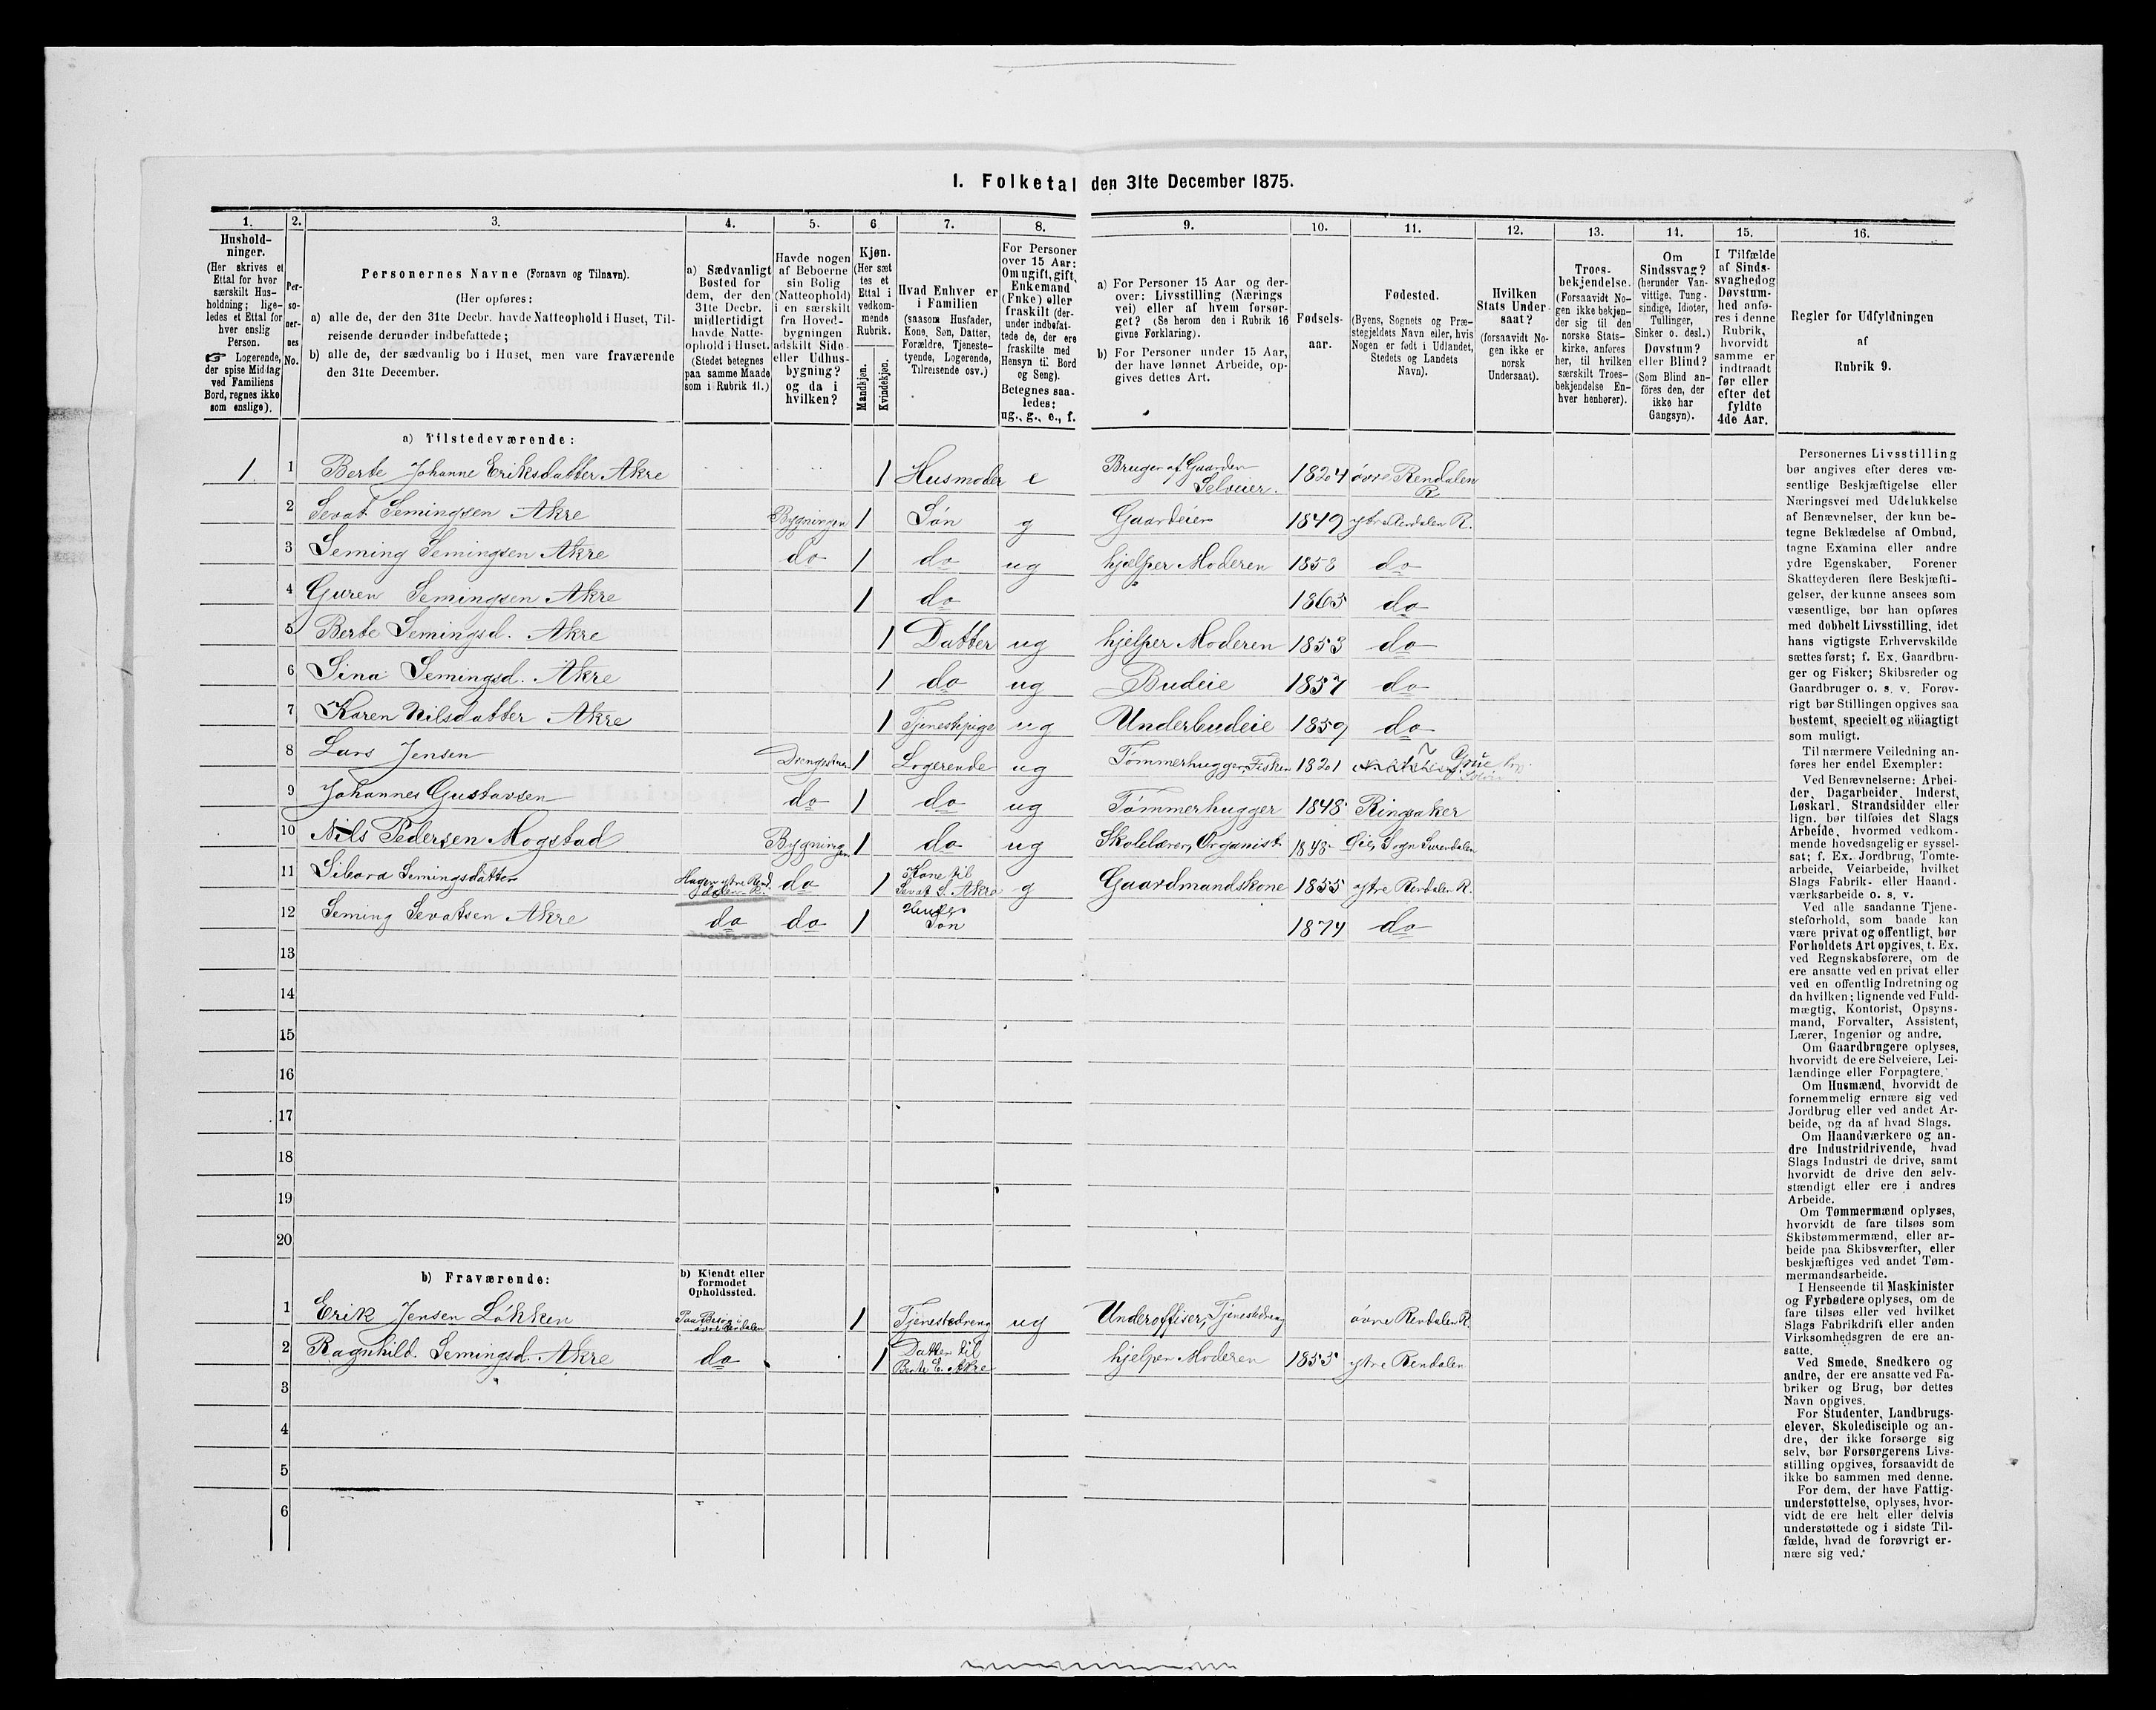 I. Folketal den 31te December 1875.
1. 2. 3. 4. 5. 6 7. 8. 9. 10. 11. 12. 13. 14. 15. 16.
Hushold-
ninger.
(Her skrives et
Ettal for hver
særskilt Hus-
holdning; lige-
ledes et Ettal for
hver enslig
Person.
☞ Logerende,
der spise Middag
ved Familiens
Bord, regnes ikke
som enslige).
Per-
so-
ner-
nes
No.
Personernes Navne (Fornavn og Tilnavn).
(Her opføres:
a) alle de, der den 31te Decbr. havde Natteophold i Huset, Til-
reisende derunder indbefattede;
b) alle de, der sædvanlig bo i Huset, men vare fraværende
den 31te December.
a) Sædvanligt
Bosted for
dem, der den
31te Decbr.
midlertidigt
havde Natte-
ophold i Huset.
(Stedet betegnes
paa samme Maade
som i Rubrik 11.)
Havde nogen
af Beboerne
sin Bolig
(Natteophold)
i en særskilt
fra Hoved-
bygningen
adskilt Side-
eller Udhus-
bygning?
og da i
hvilken?
Kjøn.
(Her sæt
tes et
Ettal i
vedkom-
mende
Rubrik.
Mandkjøn.
Kvindekjøn.
Hvad Enhver er
i Familien
(saasom Husfader,
Kone, Søn, Datter,
Forældre, Tjeneste-
tyende, Logerende,
Tilreisende osv.)
For Personer
over 15 Aar:
Om ugift, gift,
Enkemand
(Enke) eller
fraskilt (der-
under indbefat-
tede de, der ere
fraskilte med
Hensyn til Bord
og Seng).
Betegnes saa-
ledes:
ug., g., e., f.
a) For Personer 15 Aar og der-
over: Livsstilling (Nærings
vei) eller af hvem forsør-
get? (Se herom den i Rubrik 16
givne Forklaring).
b) For Personer under 15 Aar,
der have lønnet Arbeide, op-
gives dettes Art.
Fødsels-
aar.
Fødested.
(Byens, Sognets og Præ-
stegjeldets Navn eller, hvis
Nogen er født i Udlandet,
Stedets og Landets
Navn).
Hvilken
Stats Under-
saat?
(forsaavidt No-
gen ikke er
norsk
Undersaat).
Troes-
bekjendelse.
(Forsaavidt No-
gen ikke bekjen-
der sig til den
norske Stats-
kirke, anføres
her, til hvilken
særskilt Troes-
bekjendelse En-
hver henhører).
Om
Sindssvag?
(herunder Van-
vittige, Tung-
sindige, Idioter,
Tullinger,
Sinker o. desl.)
Døvstum?
eller Blind?
(Som Blind an-
föres den, der
ikke har
Gangsyn).
I Tilfælde
af Sinds-
svaghed og
Døvstum-
hed anfø-
res i denne
Rubrik,
hvorvidt
samme er
indtraadt
før eller
efter det
fyldte
4de Aar.
Regler for Udfyldningen
af
Rubrik 9.
a) Tilstedeværende:
1 1 Berte Johanne Eriksdatter Akre 1 Husmoder e Bruger af Gaarden Selveier. 1824 øvre Rendalen R
2 Sevat Semingsen Akre Bygningen 1 Søn g Gaardeier 1849 ytre Rendalen R.
3 Seming Semingsen Akre do 1 do ug hjelper Moderen 1858 do
4 Guren Semingsen Akre 1 do 1865 do
5 Berte Semingsd. Akre 1 Datter ug hjelper Moderen 1853 do
6 Sina Semingsd. Akre 1 do ug Budeie 1857 do
7 Karen Nilsdatter Akre 1 Tjenestepige ug Underbudeie 1859 do
8 Lars Jensen 1 Logerende ug Tømmerhugger, Fisker 1821 Grue
9 Johannes Gustavsen do 1 do ug Tømmerhugger 1848 Ringsaker
10 Nils Pedersen Mogstad Bygningen 1 do ug Skolelærer, Organist 1848 Øie, Sogn Surendalen
11 Sibora Semingsdatter Hagen ytre Rendalen R. do 1 Kone til Sevat S. Akre g Gaardmandskone 1855 ytre Rendalen R.
12 Seming Sevatsen Akre do do 1 Søn 1874 do
13
14
15
16
17
18
19
20
b) Fraværende:
b) Kjendt eller
formodet
Opholdssted.
1 Erik Jensen Løkken Paa Besøg i øvre Rendalen 1 Tjenestedreng ug Underoffiser, Tjenestedreng øvre Rendalen R
2 Ragnhild. Semingsd. Akre do 1 Datter til Berte E. Akre hjelper Moderen 1855 ytre Rendalen
3
4
5
6
Personernes Livsstilling
bør angives efter deres væ-
sentlige Beskjæftigelse eller
Næringsvei med Udelukkelse
af Benævnelser, der kun be-
tegne Beklædelse af Ombud,
tagne Examina eller andre
ydre Egenskaber. Forener
Skatteyderen flere Beskjæfti-
gelser, der kunne ansees som
væsentlige, bør han opføres
med dobbelt Livsstilling, idet
hans vigtigste Erhvervskilde
sættes først; f. Ex. Gaardbru-
ger og Fisker; Skibsreder og
Gaardbruger o. s. v. Forøv-
rigt bør Stillingen opgives saa
bestemt, specielt og nöiagtigt
som muligt.
Til nærmere Veiledning an-
føres her endel Exempler:
Ved Benævnelserne: Arbei-
der, Dagarbeider, Inderst,
Løskarl, Strandsidder eller
lign. bør tilføies det Slags
Arbeide, hvormed vedkom-
mende hovedsagelig er syssel-
sat; f. Ex. Jordbrug, Tomte-
arbeide, Veiarbeide, hvilket
Slags Fabrik- eller Haand-
værksarbeide o. s. v.
Ved alle saadanne Tjene-
steforhold, som baade kan
være privat og offentligt, bør
Forholdets Art opgives, t. Ex.
ved Regnskabsførere, om de
ere ansatte ved en privat eller
ved en offentlig Indretning og
da hvilken; lignende ved Fuld-
mægtig, Kontorist, Opsyns-
mand, Forvalter, Assistent,
Lærer, Ingeniør og andre.
Om Gaardbrugere oplyses,
hvorvidt de ere Selveiere, Lei-
lændinge eller Forpagtere.
Om Husmænd, hvorvidt de
fornemmelig ernære sig ved
Jordbrug eller ved andet Ar-
beide, og da af hvad Slags.
Om Haandværkere og an-
dre Industridrivende, hvad
Slags Industri de drive, samt
hvorvidt de drive den selv-
stændigt eller ere i andres
Arbeide.
Om Tømmermænd oplyses,
hvorvidt de fare tilsøs som
Skibstømmermænd, eller ar-
beide paa Skibsværfter, eller
beskjæftiges ved andet Tøm-
mermandsarbeide.
I Henseende til Maskinister
og Fyrbødere oplyses, om de
fare tilsøs eller ved hvilket
Slags Fabrikdrift eller anden
Virksomhedsgren de ere an-
satte.
Ved Smede, Snedkere og
andre, der ere ansatte ved Fa-
briker og Brug, bør dettes
Navn opgives.
For Studenter, Landbrugs-
elever, Skoledisciple og an-
dre, der ikke forsørge sig
selv, bør Forsørgerens Livs-
stilling opgives, forsaavidt de
ikke bo sammen med denne.
For dem, der have Fattig-
understøttelse, oplyses, hvor-
vidt de ere helt eller delvis
understøttede og i sidste Til-
fælde, hvad de forøvrigt er-
nære sig ved.